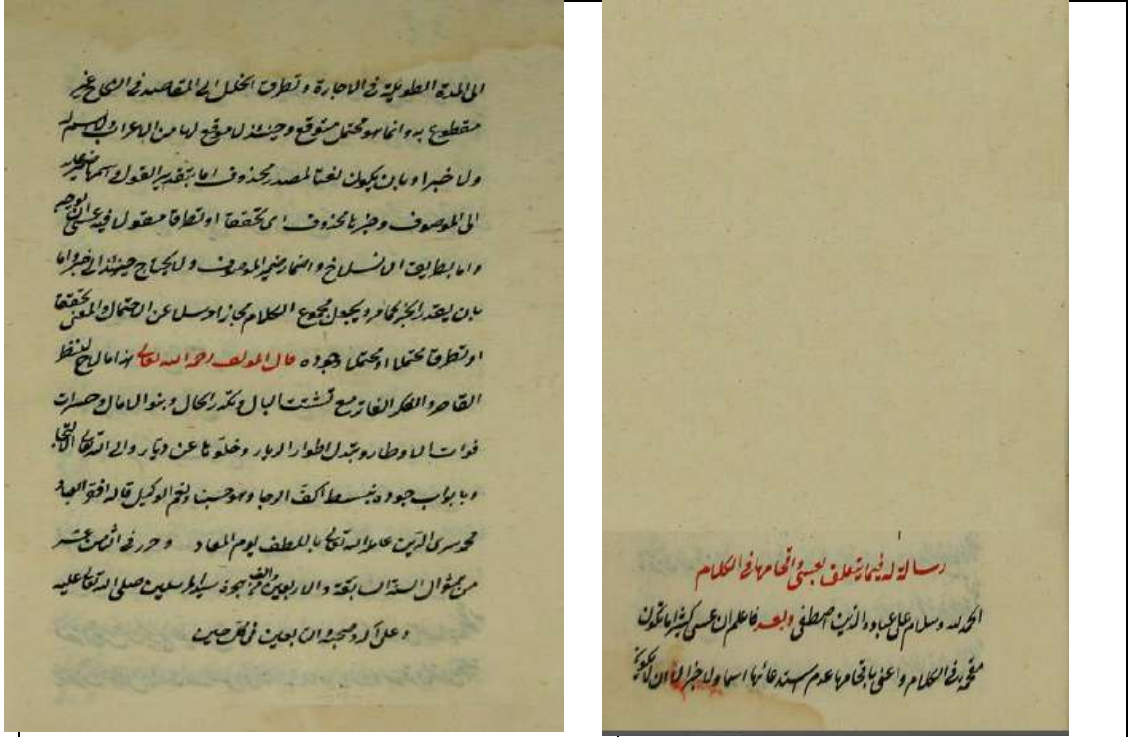 رسالة له فيما يتعلق بعسى واقحامها في الكلام
الحمد لله وسلام على عباده الذين اصطفى وبعد فاعلم ان عسى كثيرا ما تكون
مقحمة في الكلام واعني باقحامها عدم استدعائها اسما ولا خبرا اما ان تكون
الى المدة الطويلة في الاجارة وتطرق الخلل الى المقاصد في النكاح غير
مقطوع به وانما هو محتمل متوقع وحينئذ لا موقع لها من الاعراب ولا اسم لها
ولا خبر او بان يكون نعتا لمصدر محذوف اما بتقدير القول واسمها ضمير عائد
الى الموصوف وخبرها محذوف اى تحققا او تطرقا مقول فيه عسى ان يوجد
واما بطريق الانسلاخ واضمار ضمير الموصوف ولا يحتاج حينئذ الى خبر واما
بان يقدر الخبر كما مر ويجعل مجموع الكلام مجازا مرسلا عن الاحتمال والمعنى تحققا
او تطرقا محتملا او محتملا وجوده قال المؤلف رحمه الله تعالى هذا ما لاح للنظر
القاصر والفكر الفاتر مع تشتت البال وتكدر الحال ونبو الامال وحسرات
فوات الاوطار وتبدل اطوار الديار وخلوها عن ديار والى الله تعالى الالتجاء
وبابواب جوده نبسط اكف الرجا وهو حسبنا ونعم الوكيل قاله افقر العباد
محمد سرى الدين عامله الله تعالى باللطف يوم المعاد وحرر في الثامن عشر
من شوال السنة السابعة والاربعين والالف من هجرة سيد المرسلين صلى الله تعالى عليه
وعلى آله وصحبه والتابعين في كل حين